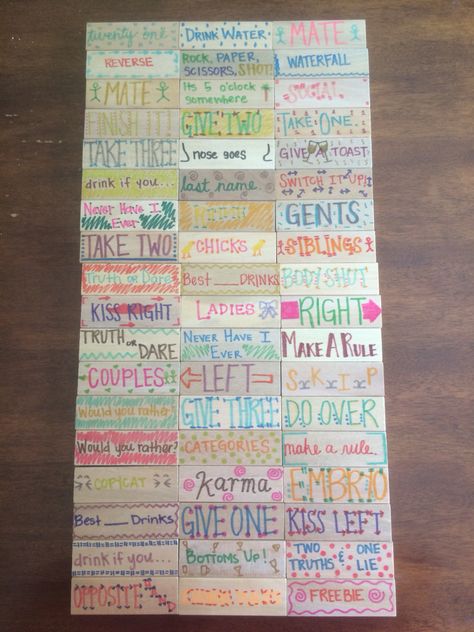 twenty one
DRINK WATER
MATE
REVERSE
ROCK, PAPER,
SCISSORS, SHOT!
WATERFALL
MATE
Its 5 o'clock
somewhere
SOCIAL
FINISH IT!
GIVE TWO
TAKE ONE.
TAKE THREE
nose goes
GIVE A TOAST
drink if you...
last name.
SWITCH IT UP!
Never Have I
Ever
GENTS
TAKE TWO
CHICKS
SIBLINGS
Truth or Dare
Best ___ DRINKS
BODY SHOT
KISS RIGHT
LADIES
RIGHT
TRUTH OR
DARE
NEVER HAVE I
EVER
MAKE A RULE
COUPLES
LEFT
SKIP
Would you rather?
GIVE THREE
DO OVER
Would you rather?
CATEGORIES
make a rule.
COPYCAT
Karma
EMBRIO
Best ___ Drinks
GIVE ONE
KISS LEFT
drink if you...
BOTTOMS UP!
TWO & ONE
TRUTHS LIE
OPPOSITE HAND
FREEBIE